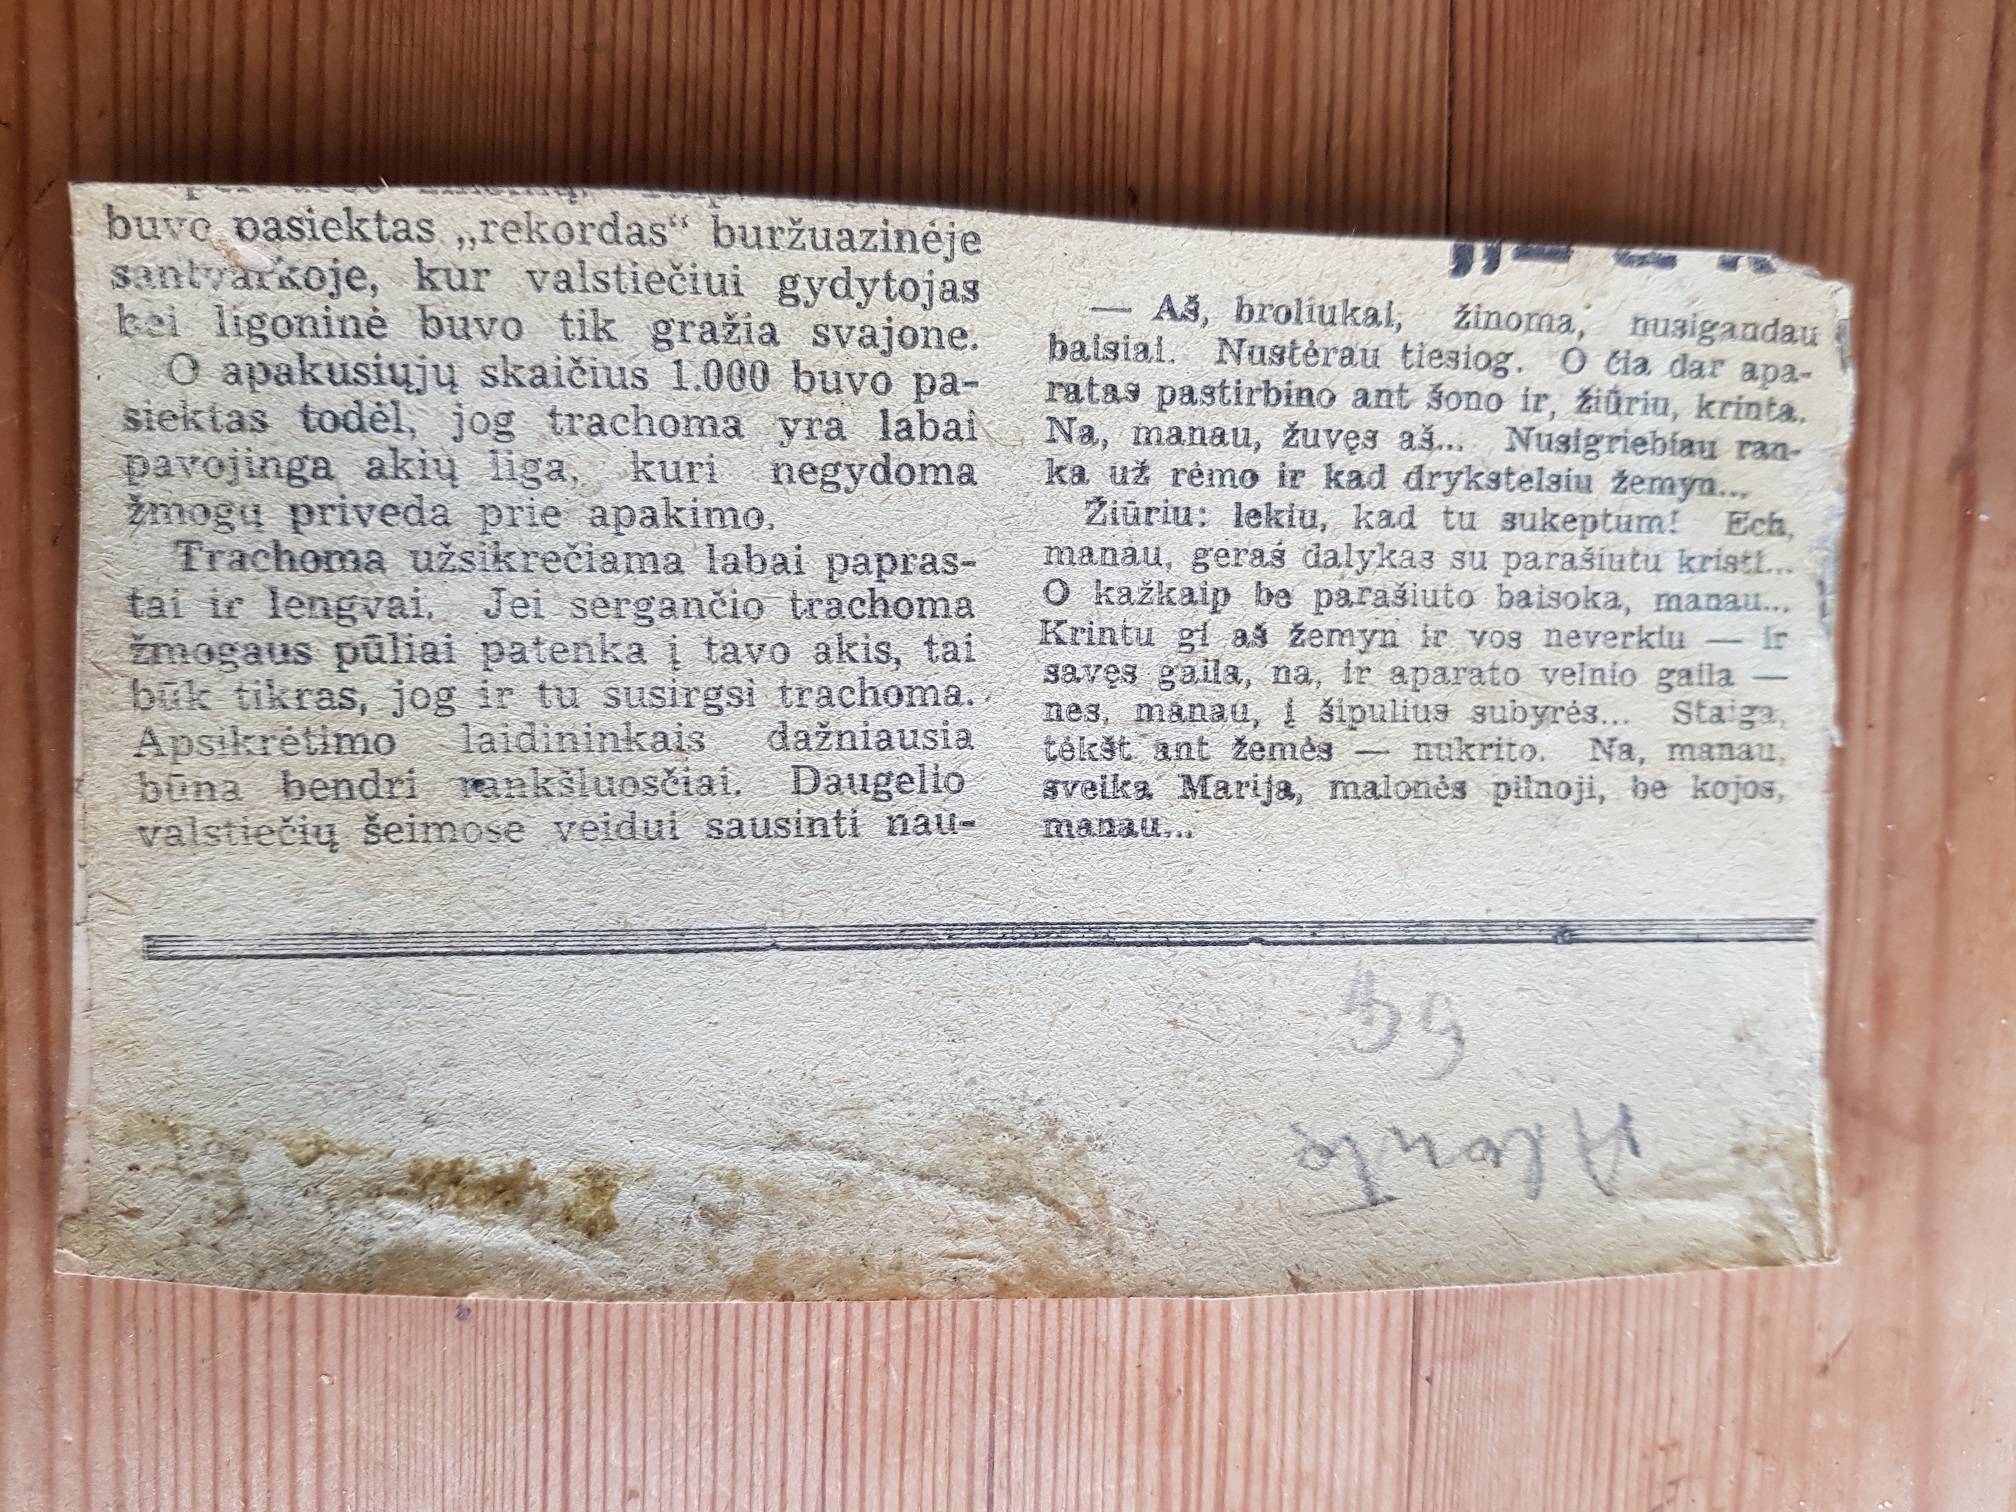 buvo pasiektas „rekordas“ buržuazinėje
santvarkoje, kur valstiečiui gydytojas
bei ligoninė buvo tik gražia svajone.
O apakusiųjų skaičius 1.000 buvo pa-
siektas todėl, jog trachoma yra labai
pavojinga akių liga, kuri negydoma
žmogų priveda prie apakimo.
Trachoma užsikrečiama labai papras-
tai ir lengvai. Jei sergančio trachoma
žmogaus pūliai patenka į tavo akis, tai
būk tikras, jog ir tu susirgsi trachoma.
Apsikrėtimo laidininkais dažniausia
būna bendri rankšluosčiai. Daugelio
valstiečių šeimose veidui sausinti nau-
— Aš, broliukai, žinoma, nusigandau
baisiai. Nustėrau tiesiog. O čia dar apa-
ratas pastirbino ant šono ir, žiūriu, krinta.
Na, manau, žuvęs aš... Nusigriebiau ran-
ka už rėmo ir kad drykstelsiu žemyn...
Žiūriu: lekiu, kad tu sukeptum! Ech,
manau, geras dalykas su parašiutu kristi...
O kažkaip be parašiuto baisoka, manau...
Krintu gi aš žemyn ir vos neverkiu — ir
savęs gaila, na, ir aparato velnio gaila —
nes, manau, į šipulius subyrės... Staiga,
tėkšt ant žemės — nukrito. Na, manau,
sveika Marija, malonės pilnoji, be kojos,
manau...